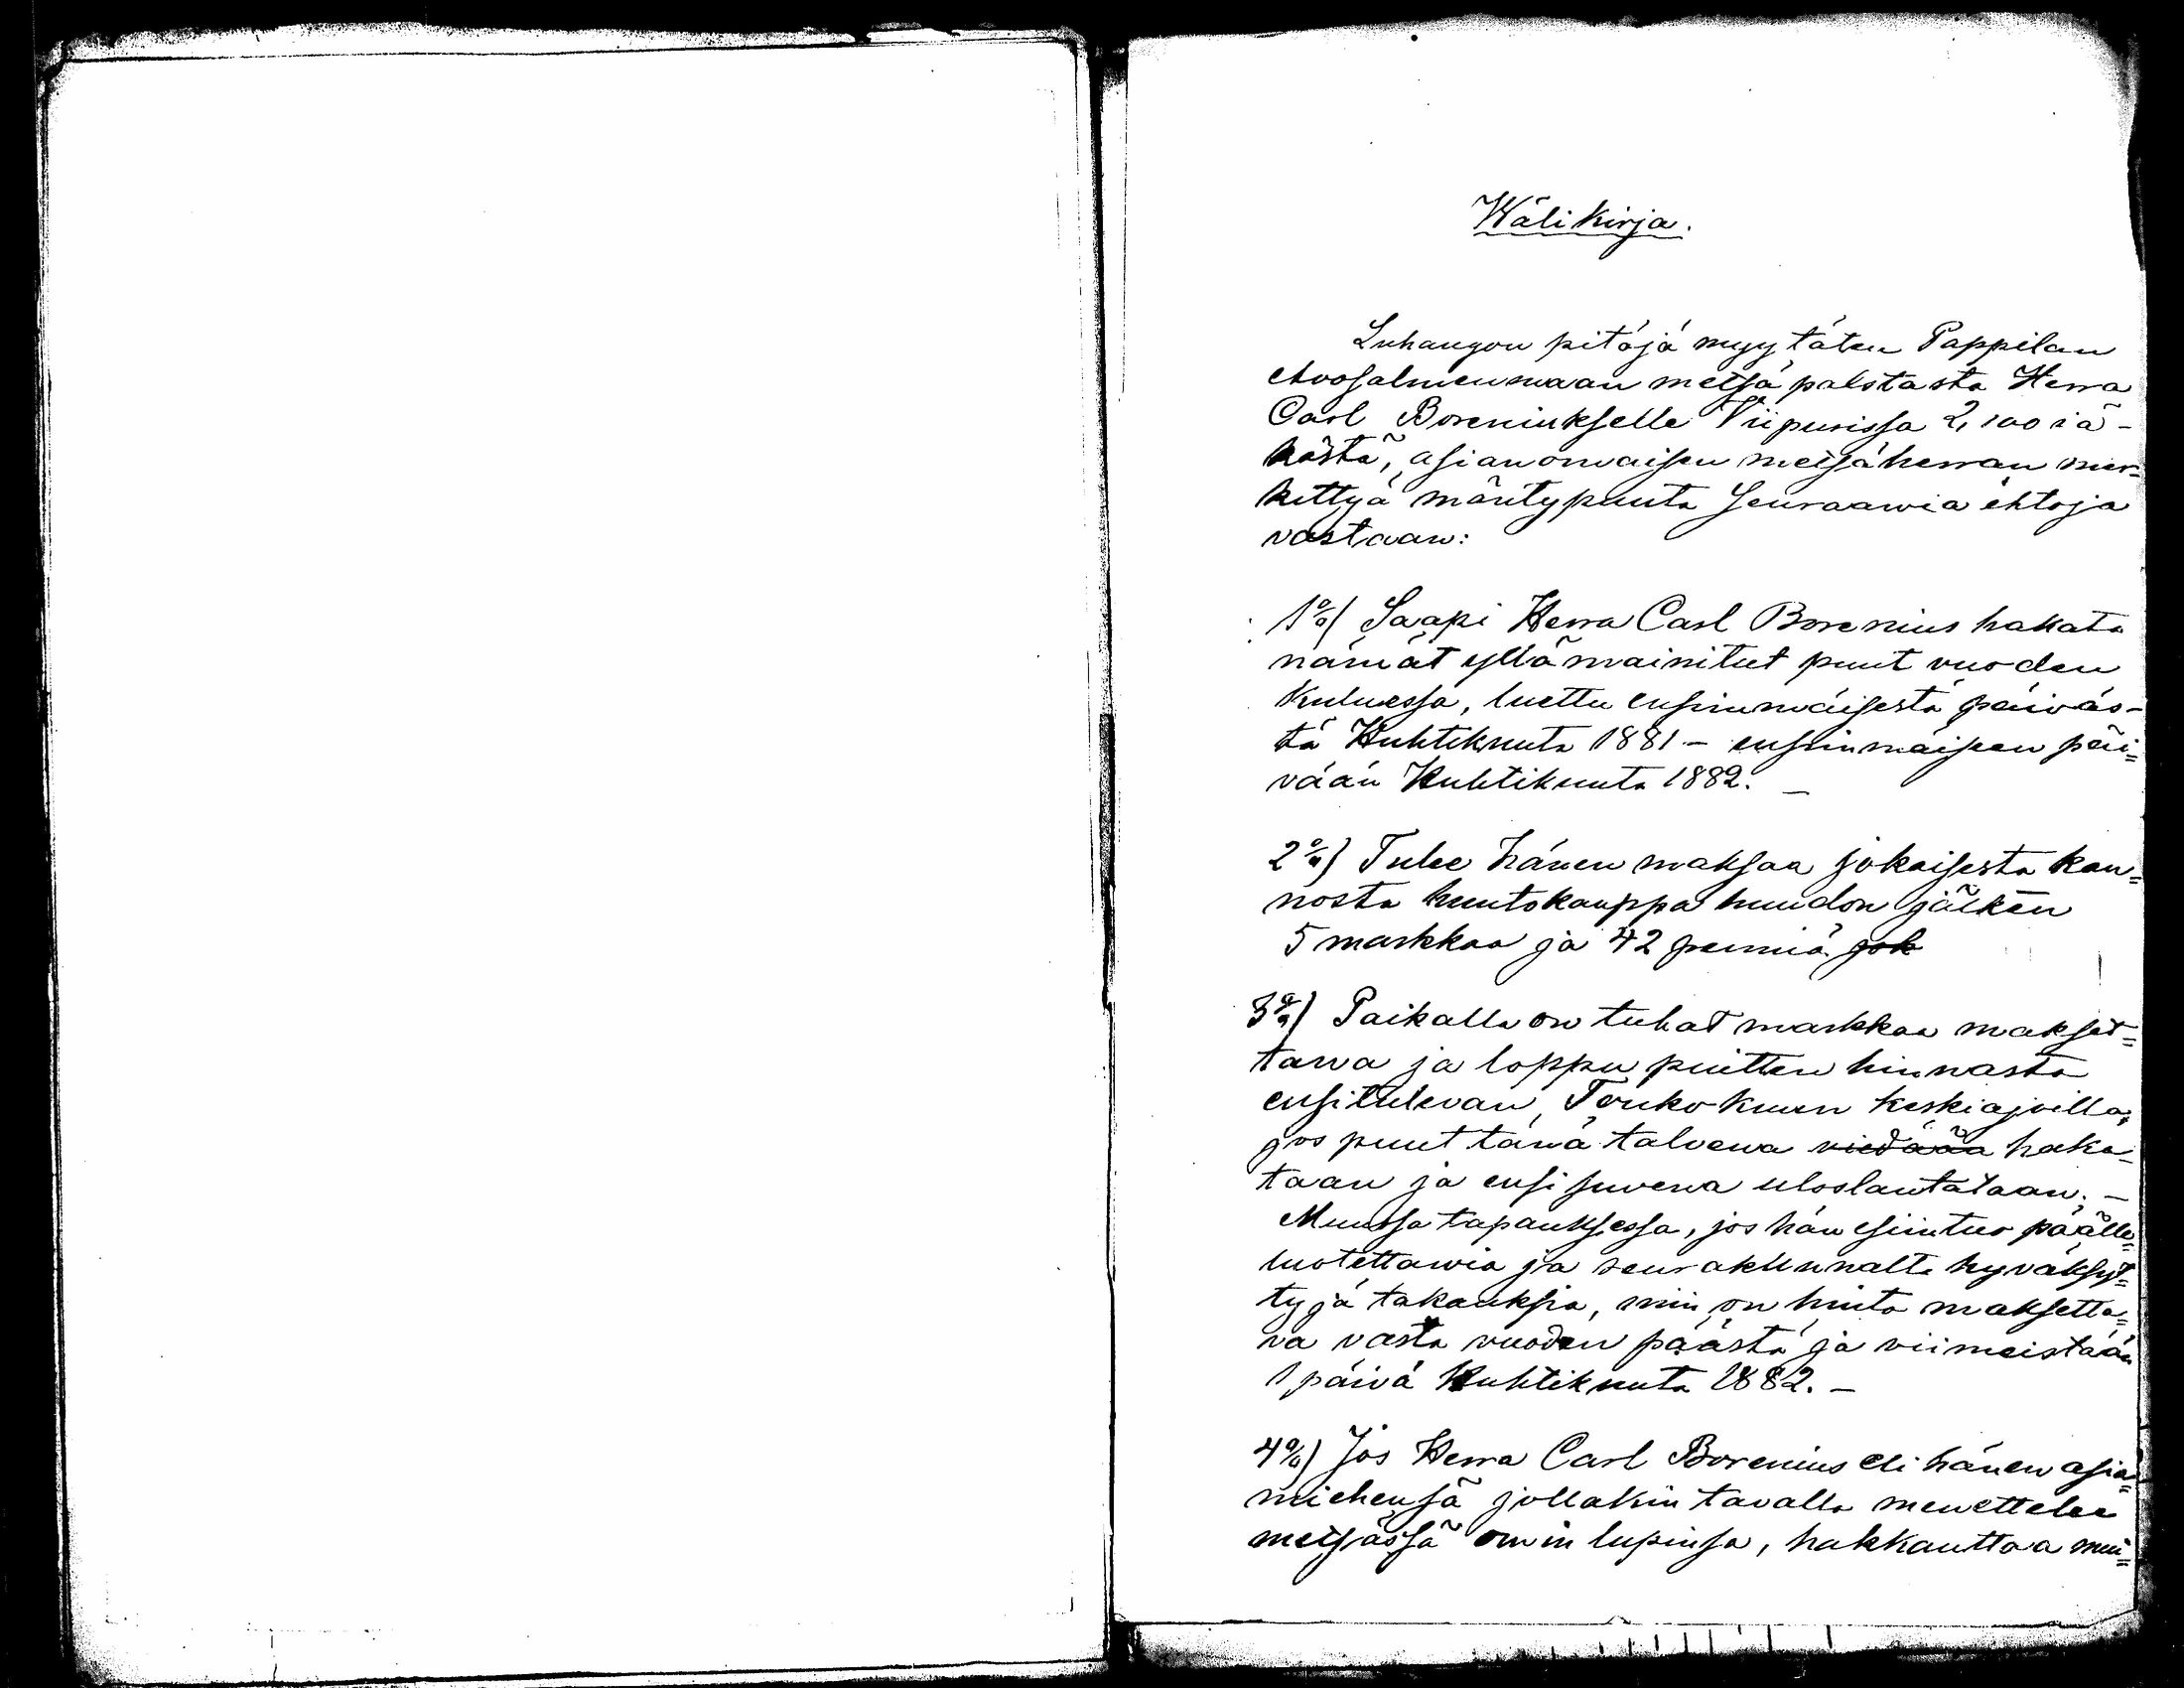 Wälikirja.
Luhangon pitäjä myy täten Pappilan
Avosalmenmaan metsä palstasta Herra
Carl Boreniukselle Viipurissa 2,100 iä-
kästä, asianomaisen metsäherran mer=
kittyä mäntypuuta seuraawia ehtoja
vastaan:
1o/o) Saapi Herra Carl Borenius hakata
nämät yllämainitut puut vuoden
kuluessa, luettu ensimmäisestä päiväs-
tä Huhtikuuta 1881 - ensimmäiseen päi=
vään Huhtikuuta 1882. -
2o/o) Tulee hänen maksaa jokaisesta kan=
nosta huutokauppa huudon jälkeen
5 markkaa ja 42 penniä jok
3o/o) Paikalla on tuhat markkaa makset=
tava ja loppu puitten hinnasta
ensitulevan Toukokuun keskiajoilla,
jos puut tänä talvena viedään haka-
taan ja ensi suvena uloslautataan. -
Muussa tapauksessa, jos hän esiintuo päälle=
luotettawia ja seurakunnalta hyväksyt=
tyjä takauksia, niin on hinta maksetta=
va vasta vuoden päästä ja viimeistään
1 päivä Huhtikuuta 1882. -
4o/o) Jos Herra Carl Borenius eli hänen asia=
miehensä jollakin tavalla menettelee
metsässä omin lupinsa, hakkauttaa mui=